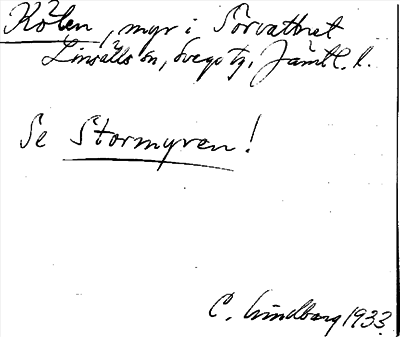 Kölen, myr i Sörvattnet
Linsälls sn, Svegs tg, Jämtl. l.
Se Stormyren!
C. Lindberg 1933.